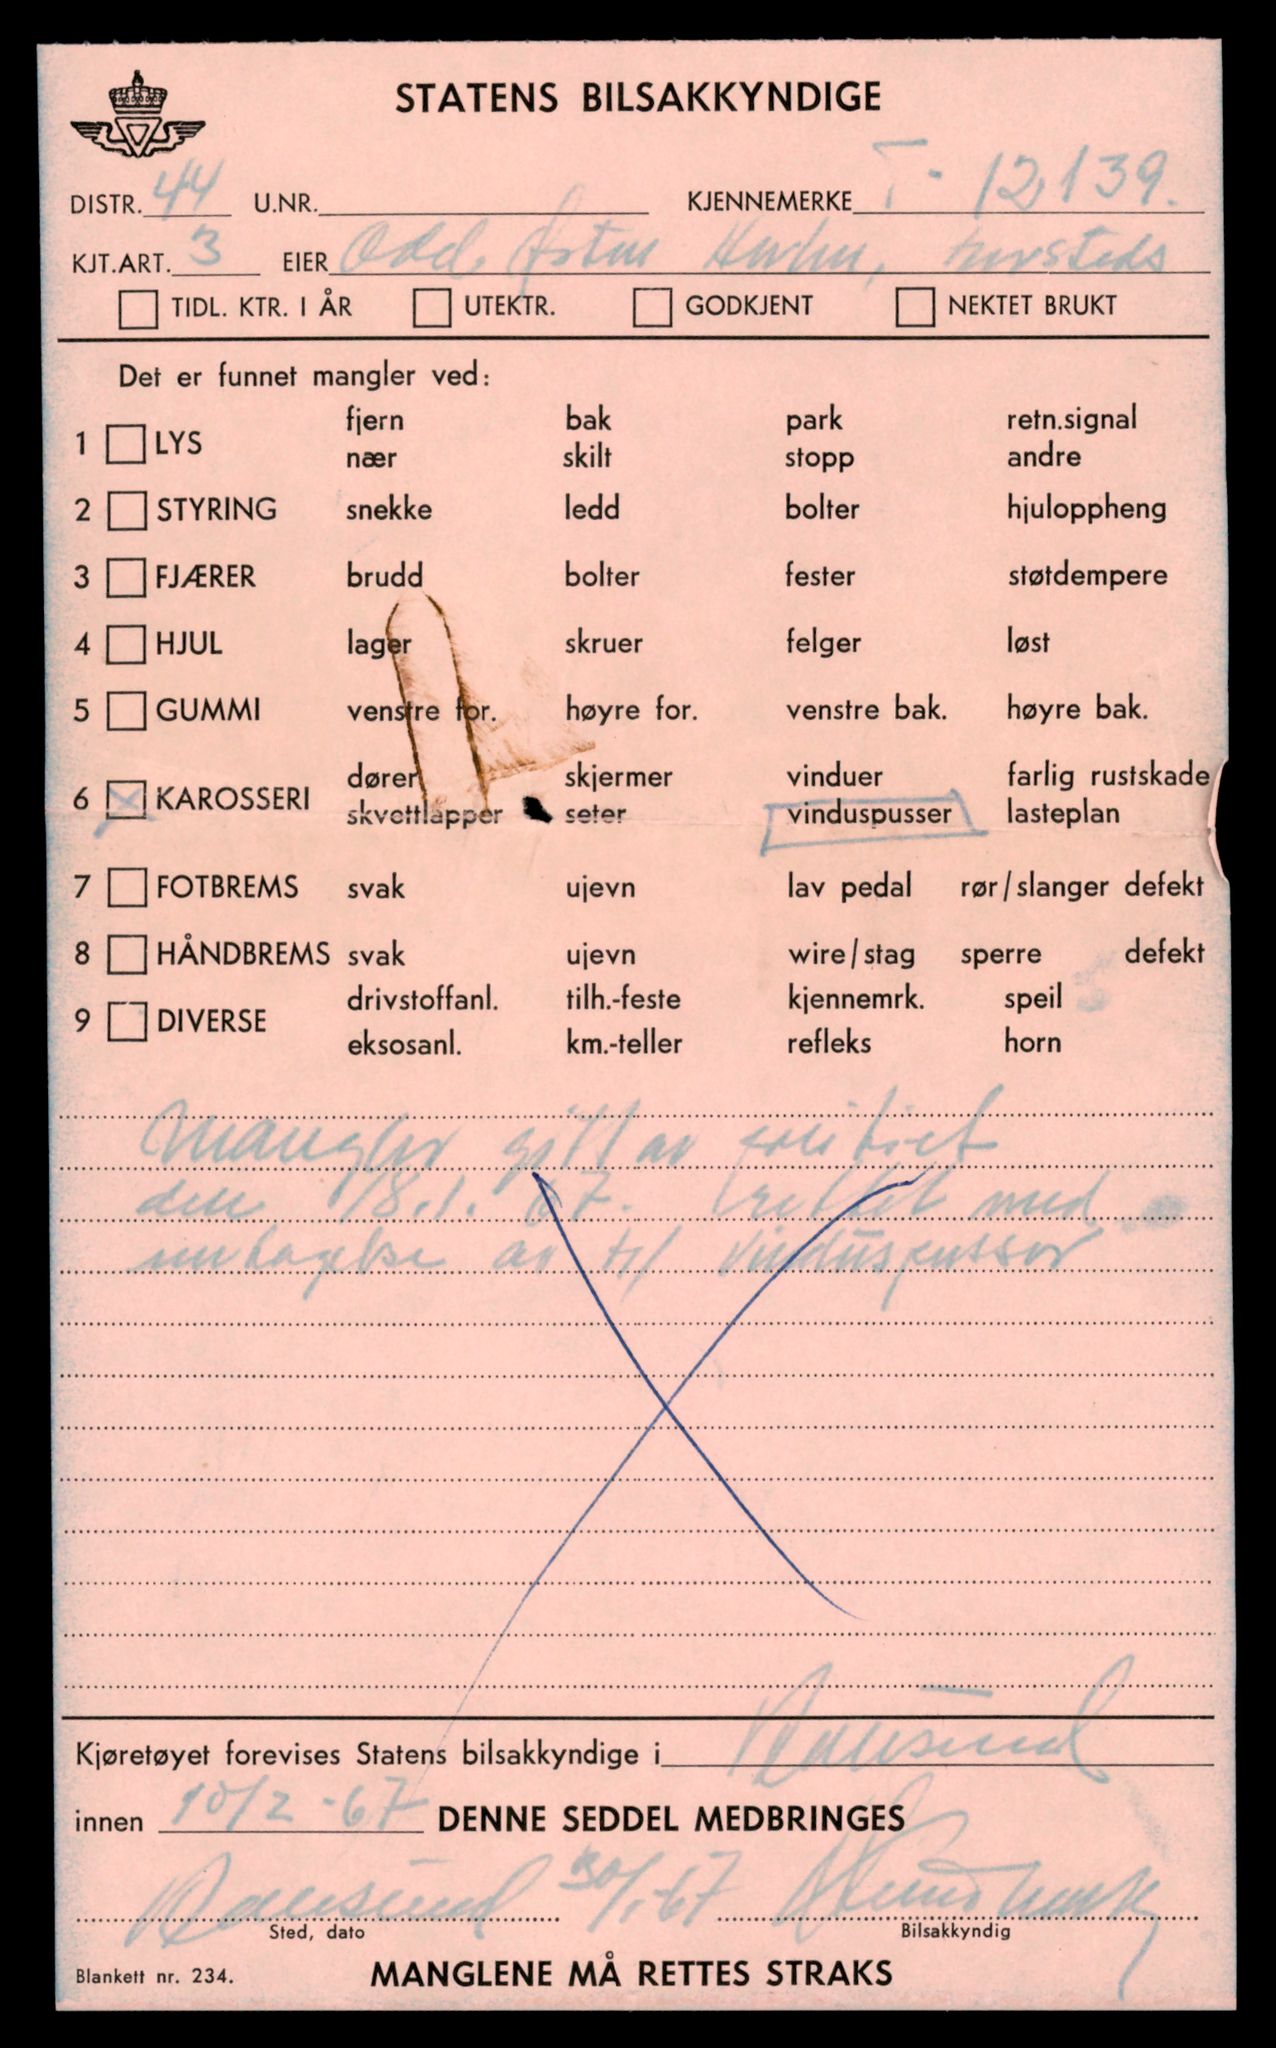 STATENS BILSAKKYNDIGE
DISTR. 44 U.NR. KJENNEMERKE T- 12139.
KJT.ART. 3 EIER Odd
TIDL. KTR. I ÅR UTEKTR. GODKJENT NEKTET BRUKT
Det er funnet mangler ved:
fjern bak park retn.signal
1 LYS
nær skilt stopp andre
2 STYRING snekke ledd bolter hjuloppheng
3 FJÆRER brudd bolter fester støtdempere
4 HJUL lager skruer felger løst
5 GUMMI venstre for. høyre for. venstre bak. høyre bak.
dører skjermer vinduer farlig rustskade
6 X KAROSSERI
skvettlapper seter vinduspusser lasteplan
7 FOTBREMS svak ujevn lav pedal rør/slanger defekt
8 HÅNDBREMS svak ujevn wire/stag sperre defekt
drivstoffanl. tilh.-feste kjennemrk. speil
9 DIVERSE
eksosanl. km.-teller refleks horn
Mangler gitt av politiet
den 18.1. 67. rettet med
untagelse av vinduspusser
Kjøretøyet forevises Statens bilsakkyndige i Aalesund
innen 10/2 -67 DENNE SEDDEL MEDBRINGES
Aalesund 30/1-67
Sted, dato Bilsakkyndig
Blankett nr. 234. MANGLENE MÅ RETTES STRAKS